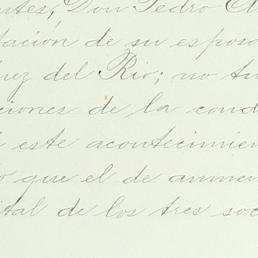 ntes, Don Pedro
tación de su espos
ez del Rio; no tu
ciones de la cond
este acontecimien
o que el de aumen
ital de los tres soc